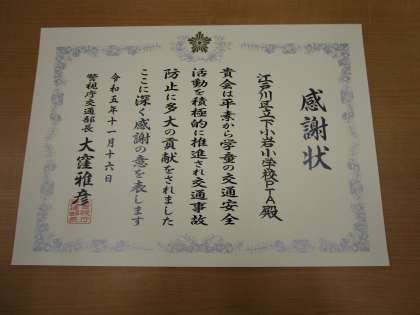 感謝状
江戸川区立下小岩小学校PTA殿
貴会は平素から学童の交通安全
活動を積極的に推進され交通事故
防止に多大の貢献をされました
ここに深く感謝の意を表します
令和五年十一月十六日
警視庁交通部長 大窪雅彦